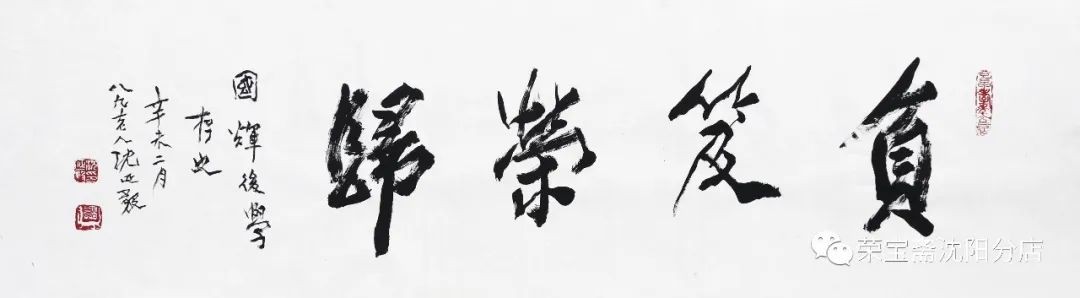 負笈榮歸
國輝後學
辛未二月
八九老人沈延毅
荣宝斋沈阳分店